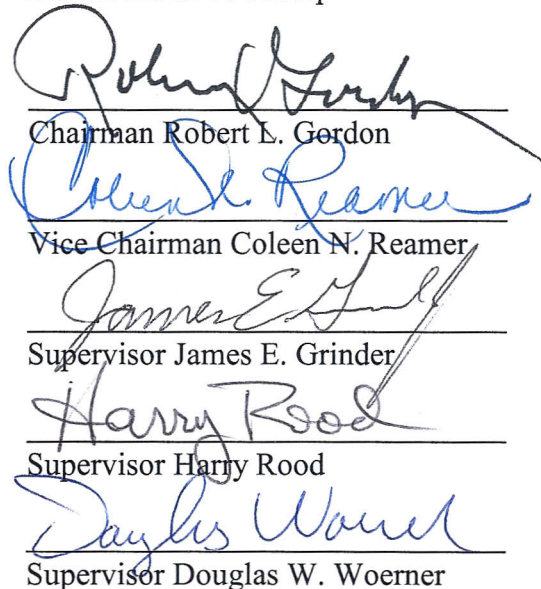 Robert L Gordon
Chairman Robert L. Gordon
Coleen N. Reamer
Vice Chairman Coleen N. Reamer
James E. Grinder
Supervisor James E. Grinder
Harry Rood
Supervisor Harry Rood
Douglas Woerner
Supervisor Douglas W. Woerner